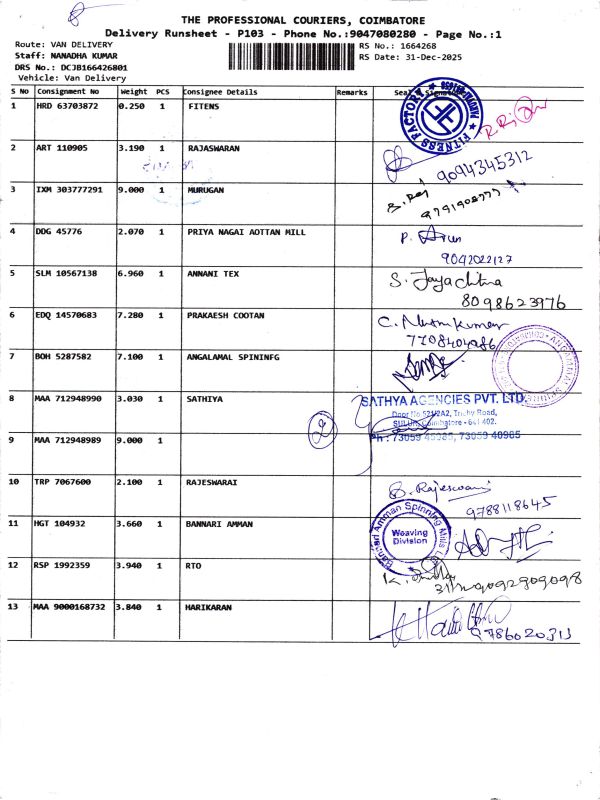 THE PROFESSIONAL COURIERS, COIMBATORE
Delivery Runsheet - P103 - Phone No.:9047080280 - Page No.:1
Route: VAN DELIVERY
RS No.: 1664268
Staff: NANADHA KUMAR
RS Date: 31-Dec-2025
DRS No.: DCJB166426801
Vehicle: Van Delivery
S No Consignment No Weight PCS Consignee Details Remarks Seal & Signature
1 HRD 63703872 0.250 1 FITENS
FITNESS FACTORY
2 ART 110905 3.190 1 RAJASWARAN
9094345312
3 IXM 303777291 9.000 1 MURUGAN
4 DDG 45776 2.070 1 PRIYA NAGAI AOTTAN MILL
P. Arun
9042022127
5 SLM 10567138 6.960 1 ANNANI TEX
S. Jayachitra
8098623976
6 EDQ 14570683 7.280 1 PRAKAESH COOTAN
7708404986
7 BOH 5287582 7.100 1 ANGALAMAL SPININFG
8 MAA 712948990 3.030 1 SATHIYA
SATHYA AGENCIES PVT. LTD.
Door No 521/2A2, Trichy Road,
SULUR, Coimbatore - 641 402.
2
9 MAA 712948989 9.000 1
Ph : 73059 45985, 73059 40985
10 TRP 7067600 2.100 1 RAJESWARAI
S. Rajeswari
9788118645
11 HGT 104932 3.660 1 BANNARI AMMAN
Bannari Amman Spinning Mills
Weaving
Division
12 RSP 1992359 3.940 1 RTO
9092909098
13 MAA 9000168732 3.840 1 HARIKARAN